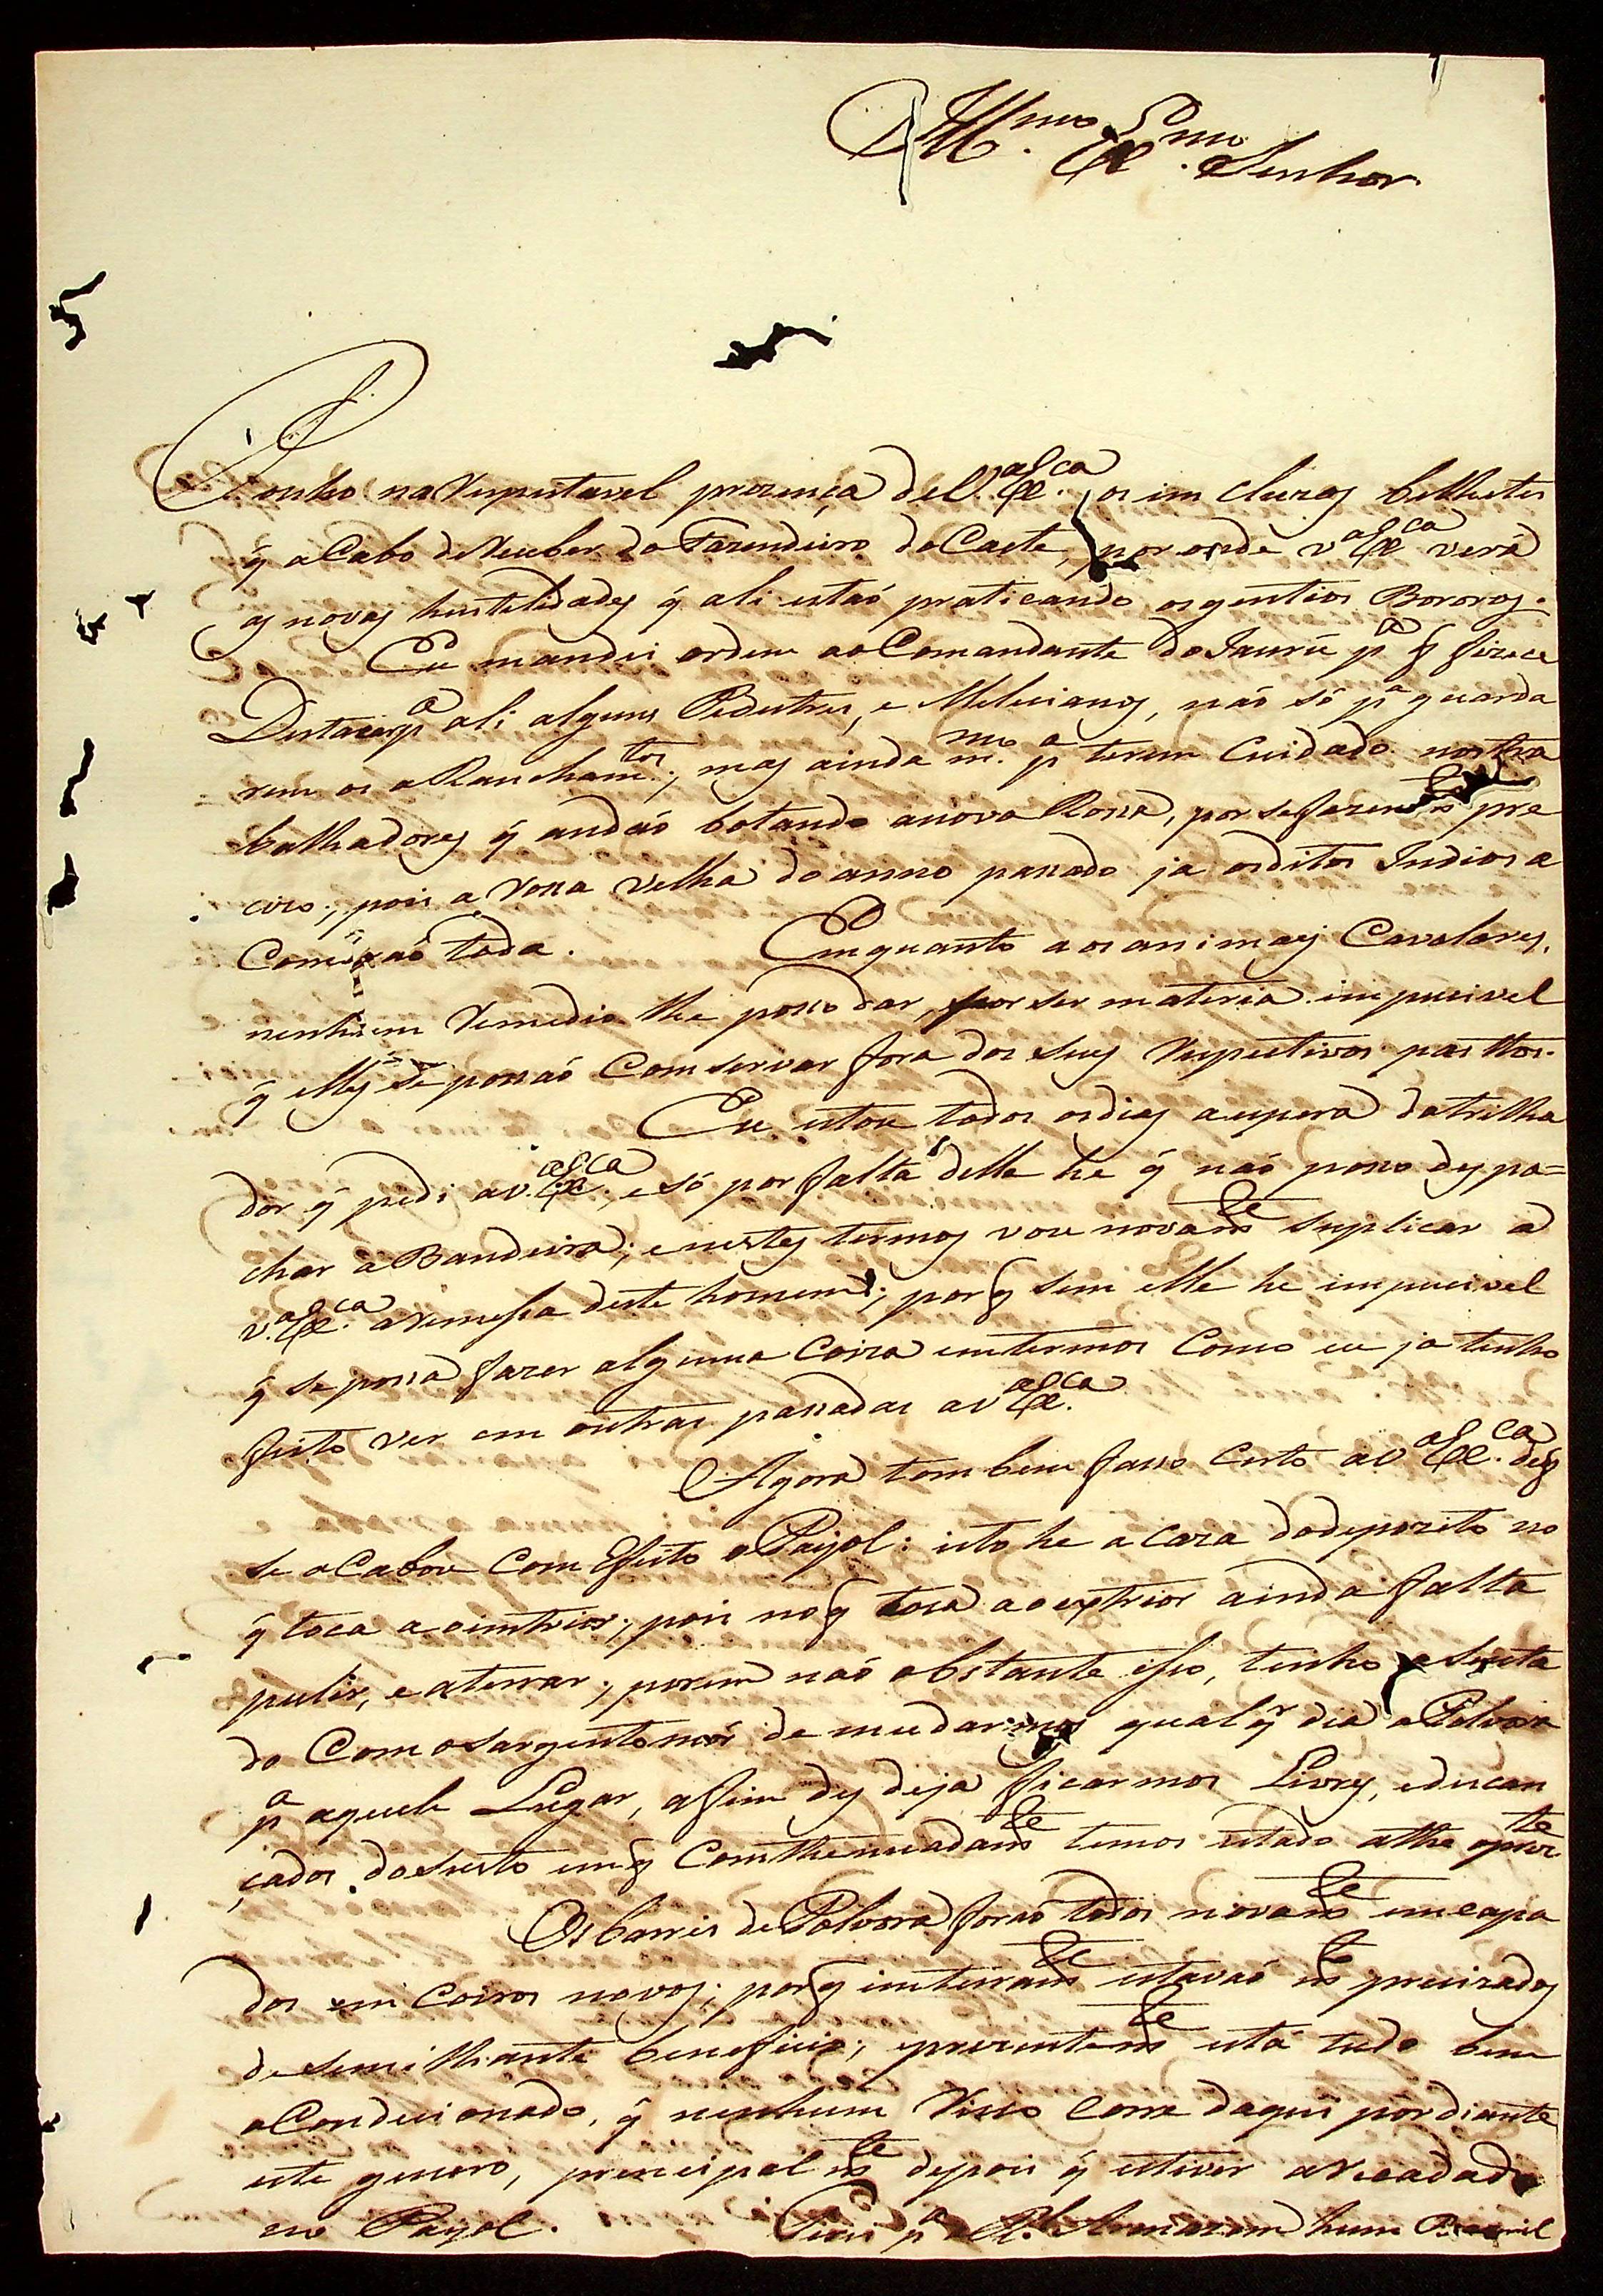 Ill.mo Ex.mo Senhor
Ponho na respeitavel prezença de V.a Ex.ca, os incluzos bilhetes
q̃ acabo de receber do Fazendeiro do Caete, por onde v.a Ex.ca verá
as novas hustelidades q̃ ali estaõ praticando os gentios Bororos.
Eu mandei ordem ao Comandante do Jaurú p.a q̃ fizece
Destacar p.a ali alguns Pedestres, e Melecianos, naõ só p.a guarda
rem os aRancham.tos, mas ainda m.mo p.a terem Cuidado nos tra
balhadores q̃ andaõ botando a nova Rossa, por se fazer m.to pre
cizo; pois a rossa velha do anno passado ja os ditos Indios a
Comeraõ toda. Emquanto aos animaes Cavalares,
nenhum remedio lhe posso dar, por ser materia impucivel
q̃ elles se possaõ Comservar fora dos seus respectivos pasttos.
Eu estou todos os dias a espera do trilha
dor q̃ pedi a v.a Ex.ca, e só por falta delle he q̃ naõ posso despa=
char a Bandeira; e nestes termos vou novam.te suplicar a
v.a Ex.ca a remessa deste homem; porq̃ sem elle he impucivel
q̃ se possa fazer alguma Coiza em termos Como eu ja tenho
feito ver em outras passadas a v.a Ex.ca
Agora tombem fasso Certo a v.a Ex.ca de q̃
se aCabou Com Efeito o Payol: isto he a caza do depozito no
q̃ toca ao interior; pois no q̃ toca ao exterior ainda falta
pulir, e aterrar; porem naõ obstante isso, tenho asenta
do Com o Sargento mór de mudarmos qualq̃r dia a Polvora
p.a aquele Lugar, afim de desdeja ficarmos Livres, e descan
çados do susto em q̃ Comthenuadam.te temos estado athe o prez.te
Os barris de Polvora foraõ todos novam.te emcapa
dos em Coiros novos; porq̃ inteiram.te estavaõ m.to precizados
de semilhante beneficio; e prezentem.te está tudo bem
aCondicionado, q̃ nenhum risco corre daqui por diante
este genero, principalm.te depois q̃ estiver arecadado
no Payol. p.a o R.l Armazem hum Barril